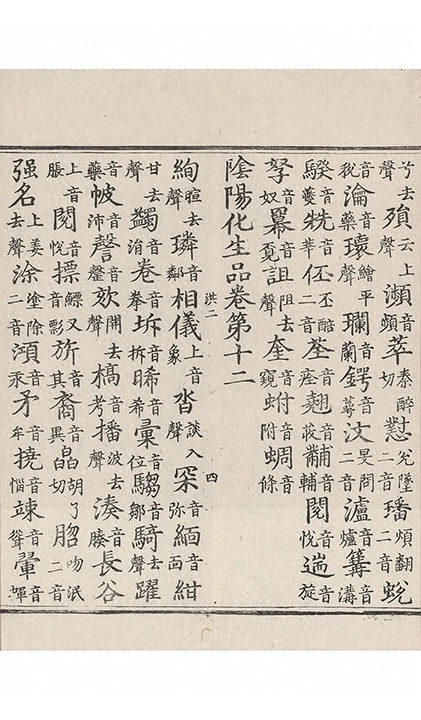 兮去聲殞云上聲瀕音頻萃秦醉切懟兊墜二音璠煩翻二音蛻
音瀹音藥瓌繪平聲瓓音蘭鍔音萼汶旻問二音瀘音爐篝音溝
騤音夔兟音莘伾丕酷二音荃音痊翹音黼音輔閱音悅遄音旋
孥音奴冪音覓詛阻去聲奎音窺蚹音附蜩音條
陰陽化生品卷第十二
洪二 四
絢暄去聲璘音鄰相儀上音象沓談入聲罙音弥緬音面紺
甘去聲蠲音涓卷音拳坼音拆晞音希彙音位騶音鄒騎去聲躍
音藥帔音沛謦音罄欬開去聲槁音考播波去聲湊音腠長谷
上音脹閱音悅摽鰾又音影旂音其裔音異皛胡了切脗吻泯二音
强名上姜去聲涂塗除二音澒音汞矛音牟撓音惱竦音聳翬音煇